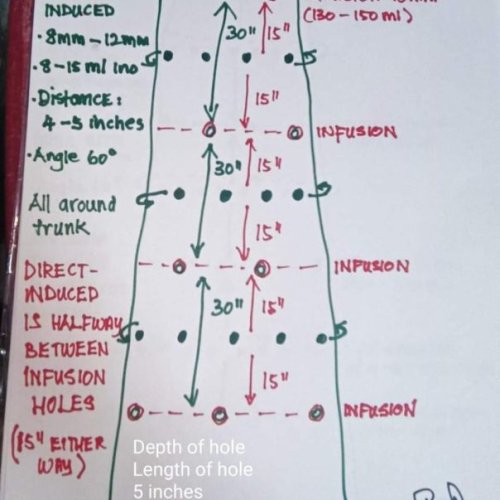 INDUCED
(130-150 ml)
• 8mm - 12mm
30" 15"
• 8-15 ml
• Distance: 15"
4-5 inches
INFUSION
• Angle 60°
30" 15"
All around
trunk
15"
DIRECT-
INDUCED
INFUSION
30" 15"
IS HALFWAY
BETWEEN
INFUSION
HOLES
15"
INFUSION
(15" EITHER
WAY)
Depth of hole
Length of hole
5 inches